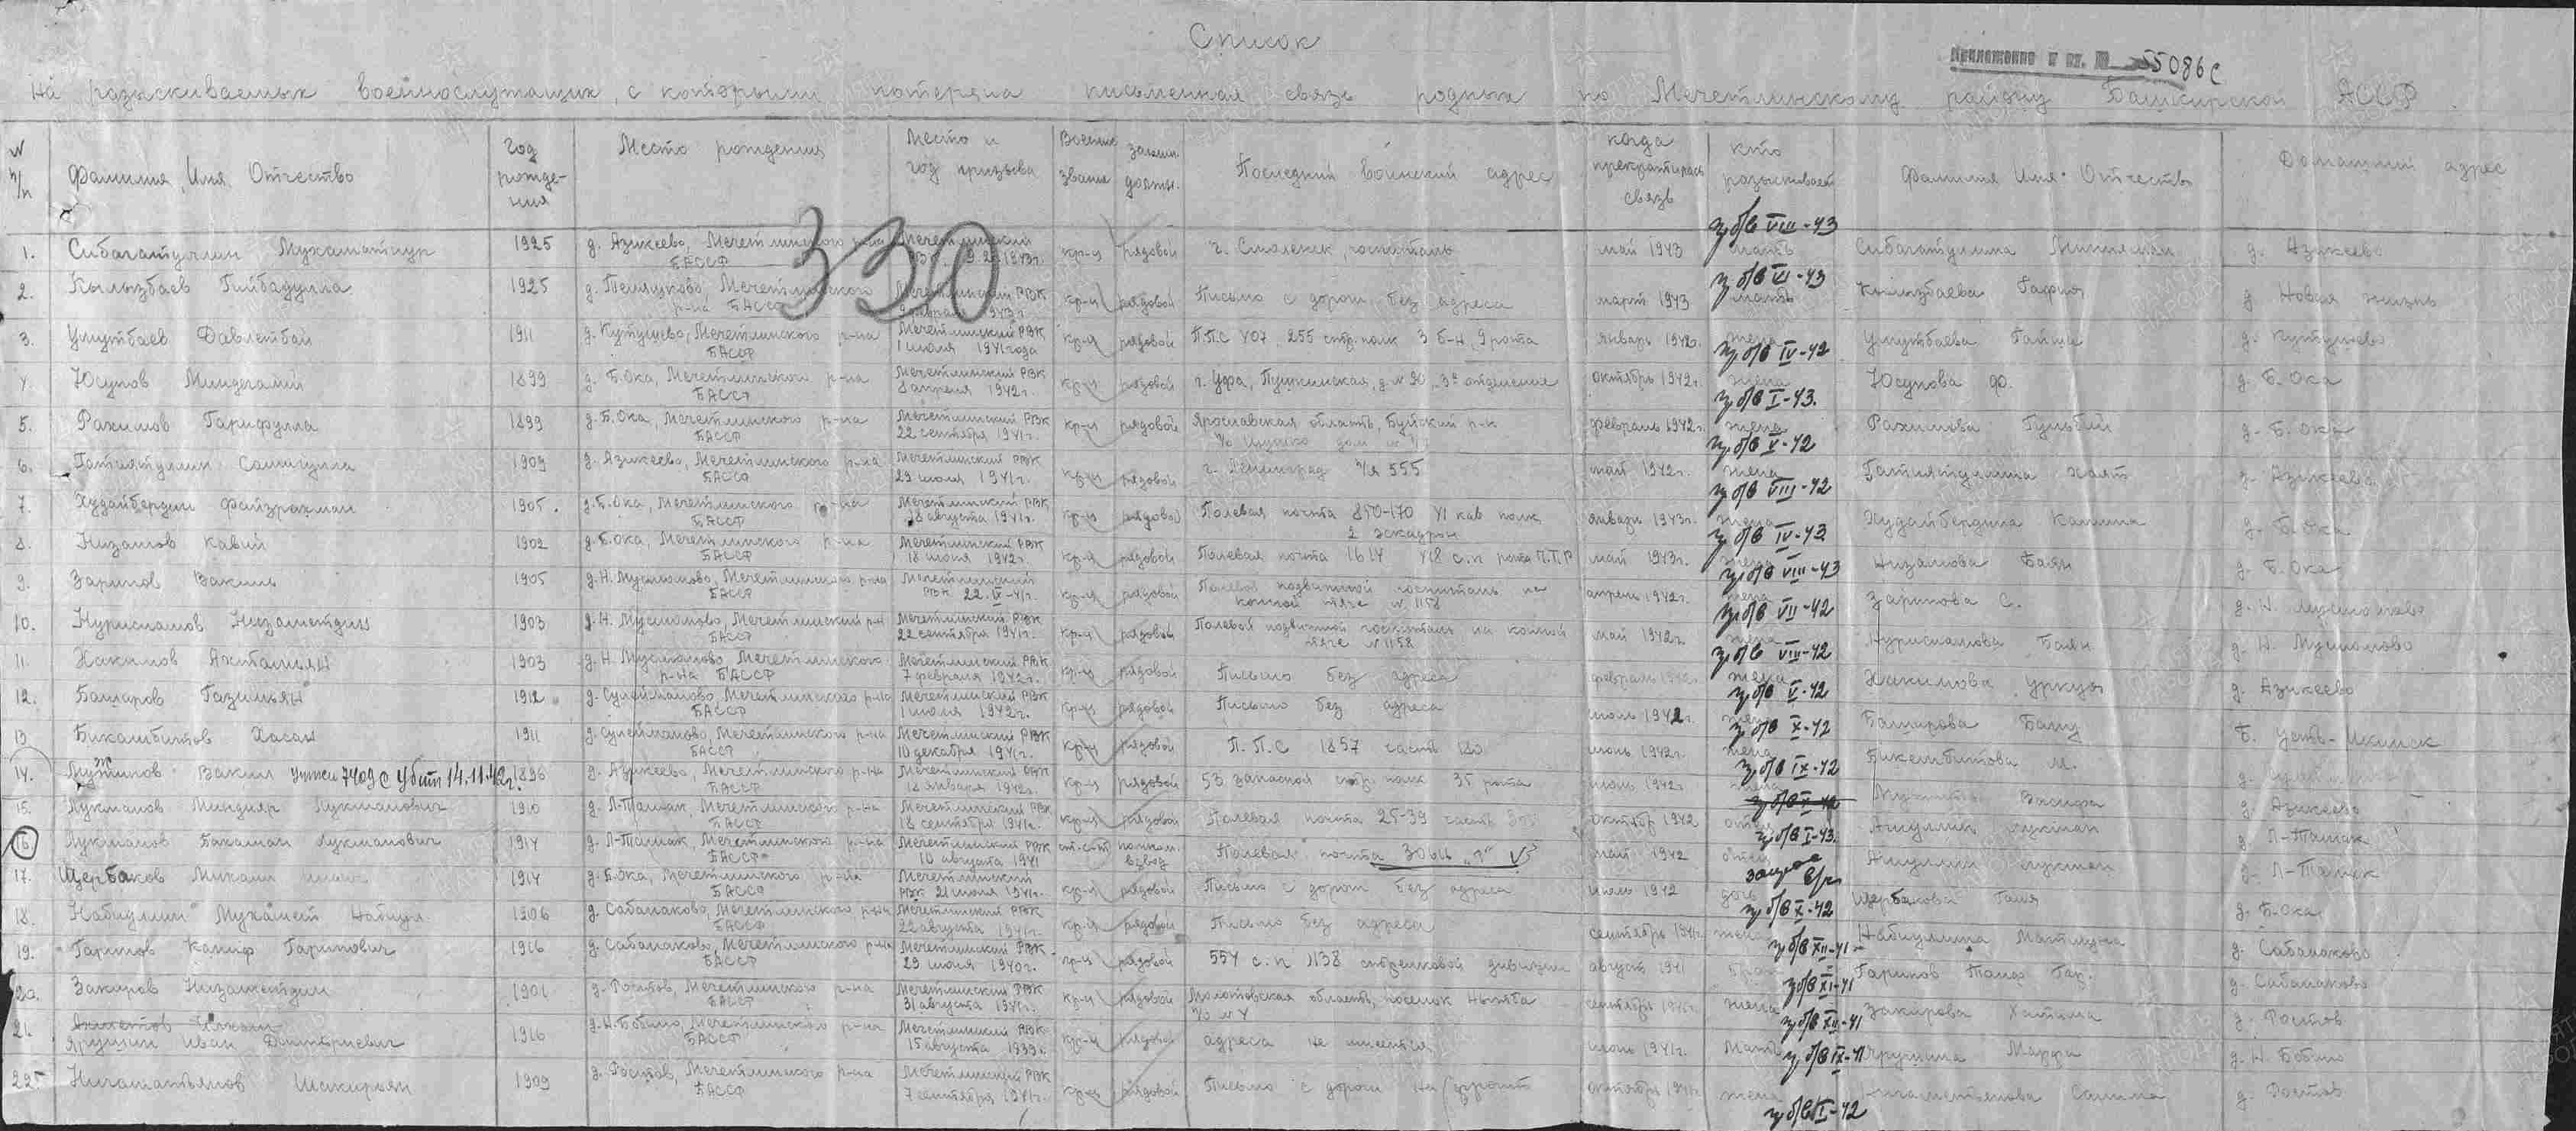 Список
Приложение к вх. № 55086с
На разыскиваемых военнослужащих, с которыми потеряна письменная связь родных по Мечетлинскому району Башкирской АССР.
№ п/п Фамилия, Имя, Отчество Год рождения Место рождения Место и год призыва Военн. звание заним. должн. Последний воинский адрес когда прекратилась связь кто разыскивает Фамилия Имя Отчество Домашний адрес
330
1. Сибагатуллин Мухаматнур 1925 д. Азикеево, Мечетлинского р-на БАССР Мечетлинский РВК 1943г. кр-ц рядовой г. Смоленск, госпиталь май 1943 мать Сибагатуллина д. Азикеево
пр б/в VIII-43
2. Кылызбаев Гибадулла 1925 д. Мечетлинского р-на БАССР Мечетлинский РВК 1943г. кр-ц рядовой Письмо с дороги, без адреса март 1943 мать Кылызбаева д. Новая жизнь
пр б/в VI-43
3. Умутбаев Давлетбай 1911 д. Кутушево, Мечетлинского р-на БАССР Мечетлинский РВК 1 июля 1941 года кр-ц рядовой П.П.С 407, 255 стр. полк 3 б-н, 9 рота январь 1942г. жена Умутбаева Гайша д. Кутушево
пр б/в IV-42
4. Юсупов 1899 д. Б.Ока, Мечетлинского р-на БАССР Мечетлинский РВК 8 апреля 1942г. кр-ц рядовой г. Уфа, Пушкинская, д. № 90, 3е отделение октябрь 1942г. жена Юсупова Ф. д. Б. Ока
пр б/в I-43.
5. Рахимов Гарифулла 1899 д. Б.Ока, Мечетлинского р-на БАССР Мечетлинский РВК 22 сентября 1941г. кр-ц рядовой Ярославская область, Буйский р-н февраль 1942г. жена Рахимова д. Б. Ока
пр б/в V-42
6. Гатиятуллин 1909 д. Азикеево, Мечетлинского р-на БАССР Мечетлинский РВК 29 июля 1941г. кр-ц рядовой г. Ленинград п/я 555 май 1942г. жена Гатиятуллина Хаят д. Азикеево
пр б/в VIII-42
7. Худайбердин Файзрахман 1905. д. Б.Ока, Мечетлинского р-на БАССР Мечетлинский РВК 18 августа 1941г. кр-ц рядовой Полевая почта 850-170 кав полк 2 эскадрон январь 1943г. жена Худайбердина д. Б. Ока
пр б/в IV-43
8. Низамов Кавий 1902 д. Б.Ока, Мечетлинского р-на БАССР Мечетлинский РВК 18 июня 1942г. кр-ц рядовой Полевая почта 1614 418 с.п рота П.Т.Р май 1943г. жена Низамова Баян д. Б. Ока
пр б/в VIII-43
9. Зарипов Вакиль 1905 д. Н. Муслюмово, Мечетлинского р-на БАССР Мечетлинский РВК 22.IX-41г. кр-ц рядовой Полевой подвижной госпиталь на конной тяге № 1158 апрель 1942г. жена Зарипова С. д. Н. Муслюмово
пр б/в VII-42
10. Нурисламов Низаметдин 1903 д. Н. Муслюмово, Мечетлинский р-н БАССР Мечетлинский РВК 22 сентября 1941г. кр-ц рядовой Полевой подвижной госпиталь на конной тяге № 1158 май 1942г. жена Нурисламова Баян д. Н. Муслюмово
пр б/в VIII-42
11. Хакимов 1903 д. Н. Муслюмово Мечетлинского р-на БАССР Мечетлинский РВК 7 февраля 1942г. кр-ц рядовой Письмо без адреса февраль 1942г. жена Хакимова д. Азикеево
пр б/в V-42
12. Баширов Газимьян 1912 д. Сулейманово, Мечетлинского р-на БАССР Мечетлинский РВК 1 июля 1942г. кр-ц рядовой Письмо без адреса июль 1942г. жена Баширова Бану Б. Усть-Икинск
пр б/в X-42
13 Бикамбитов Хасан 1911 д. Сулейманово, Мечетлинского р-на БАССР Мечетлинский РВК 10 декабря 1941г. кр-ц рядовой П.П.С 1857 часть 180 июнь 1942г. жена Бикембитова М.
пр б/в IX-42
14. Вакил учтен 7409с Убит 14.11.42г. 1896 д. Азикеево, Мечетлинского р-на БАССР Мечетлинский РВК 12 января 1942г. кр-ц рядовой 53 запасной стр. полк 35 рота июль 1942г. жена д. Азикеево
пр б/в X-42
15. Лукманов Миндияр Лукманович 1910 д. Л-Ташак, Мечетлинского р-на БАССР Мечетлинский РВК 18 сентября 1941г. кр-ц рядовой Полевая почта 25-39 часть октябр 1942 отец Лукман д. Л-Ташак
пр б/в I-43.
16. Лукманов Лукманович 1914 д. Л-Ташак, Мечетлинского р-на БАССР Мечетлинский РВК 10 августа 1941 взвод Полевая почта май 1942 отец Лукман д. Л-Ташак
17. Щербаков 1914 д. Б.Ока, Мечетлинского р-на БАССР Мечетлинский РВК 21 июня 1941г. кр-ц рядовой Письмо с дороги без адреса июль 1942 дочь Щербакова Галя д. Б.Ока
пр б/в X-42
18. Набиуллин Мухамет 1906 д. Сабанаково, Мечетлинского р-на БАССР Мечетлинский РВК 22 августа 1941г. кр-ц рядовой Письмо без адреса сентябрь 1941г. жена Набиуллина д. Сабанаково
пр б/в XII-41
19. Гарипов Гарипович 1916 д. Сабанаково, Мечетлинского р-на БАССР Мечетлинский РВК 29 июня 1940г. кр-ц рядовой 554 с.п 138 стрелковой дивизии август 1941 брат Гарипов д. Сабанаково
пр б/в XI-41
20. Закиров Низаметдин 1901 д. Ростов, Мечетлинского р-на БАССР Мечетлинский РВК 31 августа 1941г. кр-ц рядовой Молотовская область, поселок Нытва п/о № 4 сентябрь 1941г. жена Закирова Хатима д. Ростов
пр б/в XII-41
21. Ярушин Иван Дмитриевич 1916 д. Н. Бобино, Мечетлинского р-на БАССР Мечетлинский РВК 15 августа 1939г. кр-ц рядовой адреса не имеется июнь 1941г. мать Ярушина Марфа д. Н. Бобино
пр б/в IX-41
22. Нигаматьянов Шакирьян 1909 д. Ростов, Мечетлинского р-на БАССР Мечетлинский РВК 7 сентября 1941г. кр-ц рядовой Письмо с дороги на фронт октябрь 1941г. жена Нигаметьянова Салима д. Ростов
пр б/в I-42